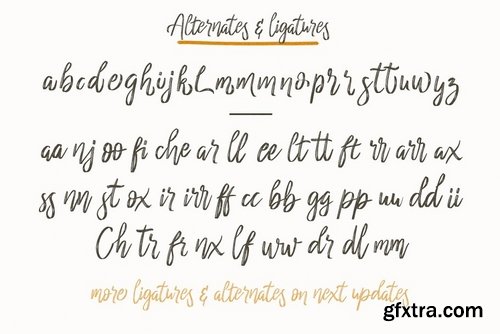 Alternates & ligatures
abcdeghijkLmmmnoprrsttuwyz
aa nj oo fi che ar ll ee lt tt ft rr arr ax
ss nn st ox ir irr ff cc bb gg pp uu dd ii
Ch tr fr nx lf uw dr dl mm
more ligatures & alternates on next updates
gfxtra.com